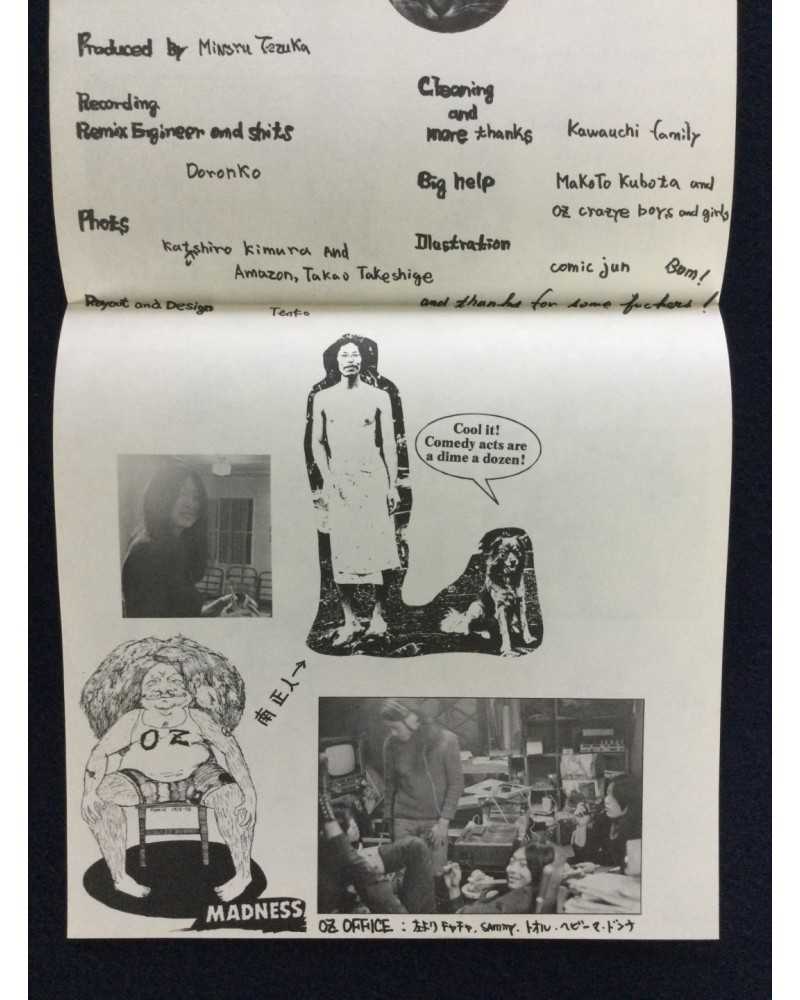 Produced by Minoru Tezuka
Recording
Remix Engineer and shits
Doronko
Phots
Katshiro Kimura And
Amazon, Takao Takeshige
Rayout and Design Tento
Cleaning
and
more thanks Kawauchi family
Big help MaKoTo Kubota and
Oz crazye boys and girls
Illustration
comic jun Bom!
and thanks for some fuckers!
Cool it!
Comedy acts are
a dime a dozen!
南正人→
OZ
MADNESS
OZ OFFICE : 左より チャチャ, SAMMY, トオル・ヘビーマ・ドンナ